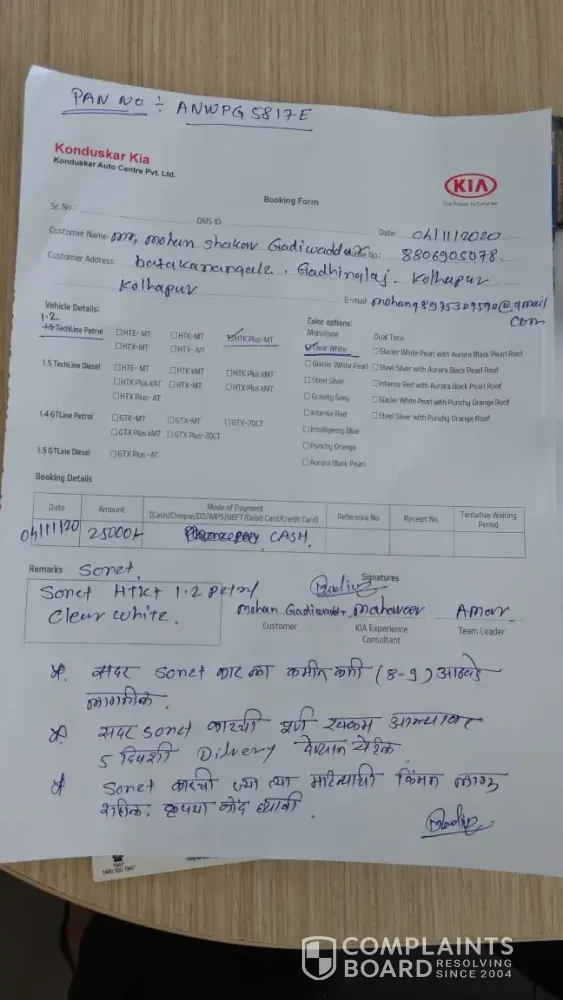 PAN NO ÷ ANWPG5817E
Konduskar Kia
Konduskar Auto Centre Pvt. Ltd.
KIA
The Power to Surprise
Booking Form
Sr. No.:
DMS ID:
Date: 04/11/2020
Customer Name: Mr, Mohan Shakar Gadiwaddar No.: 8806905078.
Customer Address: Gadhinglaj. Kolhapur
Kolhapur
E-mail:
com
Vehicle Details:
Color options:
1.2
1.5 TechLine Petrol
☐HTE-MT ☐HTK-MT ☑HTK Plus-MT
☐HTX-MT
Monotone
Dual Tone
☑Clear White
☐Glacier White Pearl
☐Steel Silver
☐Gravity Grey
☐Intense Red
☐Intelligency Blue
☐Punchy Orange
☐Aurora Black Pearl
☐Glacier White Pearl with Aurora Black Pearl Roof
☐Steel Silver with Aurora Black Pearl Roof
☐Intense Red with Aurora Black Pearl Roof
☐Glacier White Pearl with Punchy Orange Roof
☐Steel Silver with Punchy Orange Roof
1.5 TechLine Diesel
☐HTE-MT ☐HTK kMT ☐HTK Plus kMT
☐HTK Plus kAT ☐HTX-MT ☐HTX Plus kMT
☐HTX Plus-AT
1.4 GTLine Petrol
☐GTK-MT ☐GTX-MT ☐GTX-7DCT
☐GTX Plus kMT ☐GTX Plus-7DCT
1.5 GTLine Diesel
☐GTX Plus-AT
Booking Details
Date Amount Mode of Payment Reference No. Receipt No. Tentative Waiting
(Cash/Cheque/DD/IMPS/NEFT/Debit Card/Credit Card) Period
04/11/20 25000/- CASH.
Remarks Sonet.
Signatures
Sonet HTK+ 1.2 petrol
Clear White.
Mohan Gadiwaddr. Mahaveer Amar.
Customer
KIA Experience
Consultant
Team Leader
सदर Sonet कार ला कमीत कमी (8-9) आठवडे
लागतील.
सदर Sonet कारची पूर्ण रक्कम आल्यावर
5 दिवशी Dilvery देण्यात येईल
Sonet कारची ज्या त्या महिन्याची किंमत लागू
राहील. कृपया नोंद घ्यावी.
1947
COMPLAINTS
BOARD
RESOLVING
SINCE 2004